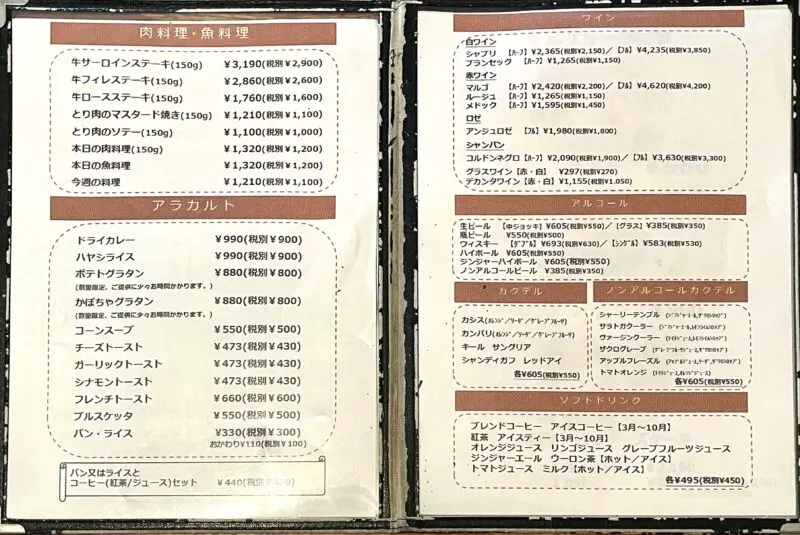 肉料理・魚料理
牛サーロインステーキ(150g) ¥3,190(税別¥2,900)
牛フィレステーキ(150g) ¥2,860(税別¥2,600)
牛ロースステーキ(150g) ¥1,760(税別¥1,600)
とり肉のマスタード焼き(150g) ¥1,210(税別¥1,100)
とり肉のソテー(150g) ¥1,100(税別¥1,000)
本日の肉料理(150g) ¥1,320(税別¥1,200)
本日の魚料理 ¥1,320(税別¥1,200)
今週の料理 ¥1,210(税別¥1,100)
アラカルト
ドライカレー ¥990(税別¥900)
ハヤシライス ¥990(税別¥900)
ポテトグラタン ¥880(税別¥800)
(数量限定、ご提供に少々お時間かかります。)
かぼちゃグラタン ¥880(税別¥800)
(数量限定、ご提供に少々お時間かかります。)
コーンスープ ¥550(税別¥500)
チーズトースト ¥473(税別¥430)
ガーリックトースト ¥473(税別¥430)
シナモントースト ¥473(税別¥430)
フレンチトースト ¥660(税別¥600)
ブルスケッタ ¥550(税別¥500)
パン・ライス ¥330(税別¥300)
おかわり¥110(税別¥100)
パン又はライスと
コーヒー(紅茶/ジュース)セット ¥440(税別¥400)
ワイン
白ワイン
シャブリ 【ハーフ】¥2,365(税別¥2,150)／【フル】¥4,235(税別¥3,850)
ブランセック 【ハーフ】¥1,265(税別¥1,150)
赤ワイン
マルゴ 【ハーフ】¥2,420(税別¥2,200)／【フル】¥4,620(税別¥4,200)
ルージュ 【ハーフ】¥1,265(税別¥1,150)
メドック 【ハーフ】¥1,595(税別¥1,450)
ロゼ
アンジュロゼ 【フル】¥1,980(税別¥1,800)
シャンパン
コルドンネグロ【ハーフ】¥2,090(税別¥1,900)／【フル】¥3,630(税別¥3,300)
グラスワイン【赤・白】 ¥297(税別¥270)
デカンタワイン【赤・白】¥1,155(税別¥1,050)
アルコール
生ビール 【中ジョッキ】¥605(税別¥550)／【グラス】¥385(税別¥350)
瓶ビール ¥550(税別¥500)
ウィスキー 【ダブル】¥693(税別¥630)／【シングル】¥583(税別¥530)
ハイボール ¥605(税別¥550)
ジンジャーハイボール ¥605(税別¥550)
ノンアルコールビール ¥385(税別¥350)
カクテル
カシス(オレンジ/ソーダ/グレープフルーツ)
カンパリ(オレンジ/ソーダ/グレープフルーツ)
キール サングリア
シャンディガフ レッドアイ
各¥605(税別¥550)
ノンアルコールカクテル
シャーリーテンプル
サラトガクーラー
ヴァージンクーラー
ザクログレープ
アップルフレーズル
トマトオレンジ (トマトジュース,オレンジジュース)
各¥605(税別¥550)
ソフトドリンク
ブレンドコーヒー アイスコーヒー【3月～10月】
紅茶 アイスティー【3月～10月】
オレンジジュース リンゴジュース グレープフルーツジュース
ジンジャーエール ウーロン茶【ホット／アイス】
トマトジュース ミルク【ホット／アイス】
各¥495(税別¥450)